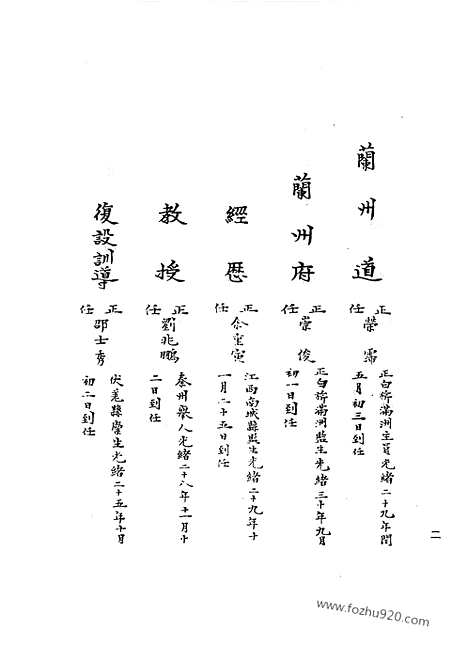 蘭州道
正任 榮霈
正白旂滿洲生員光緒二十九年閏
五月初三日到任
蘭州府
正任 崇俊
正白旂滿洲監生光緒三十年九月
初一日到任
經歷
正任 余重寅
江西南城縣監生光緒二十九年十
一月二十五日到任
教授
正任 劉兆鵬
秦州舉人光緒二十八年十一月十
二日到任
復設訓導
正任 邵士秀
伏羌縣廩生光緒二十五年十月
初二日到任
二
www.fozhu920.com